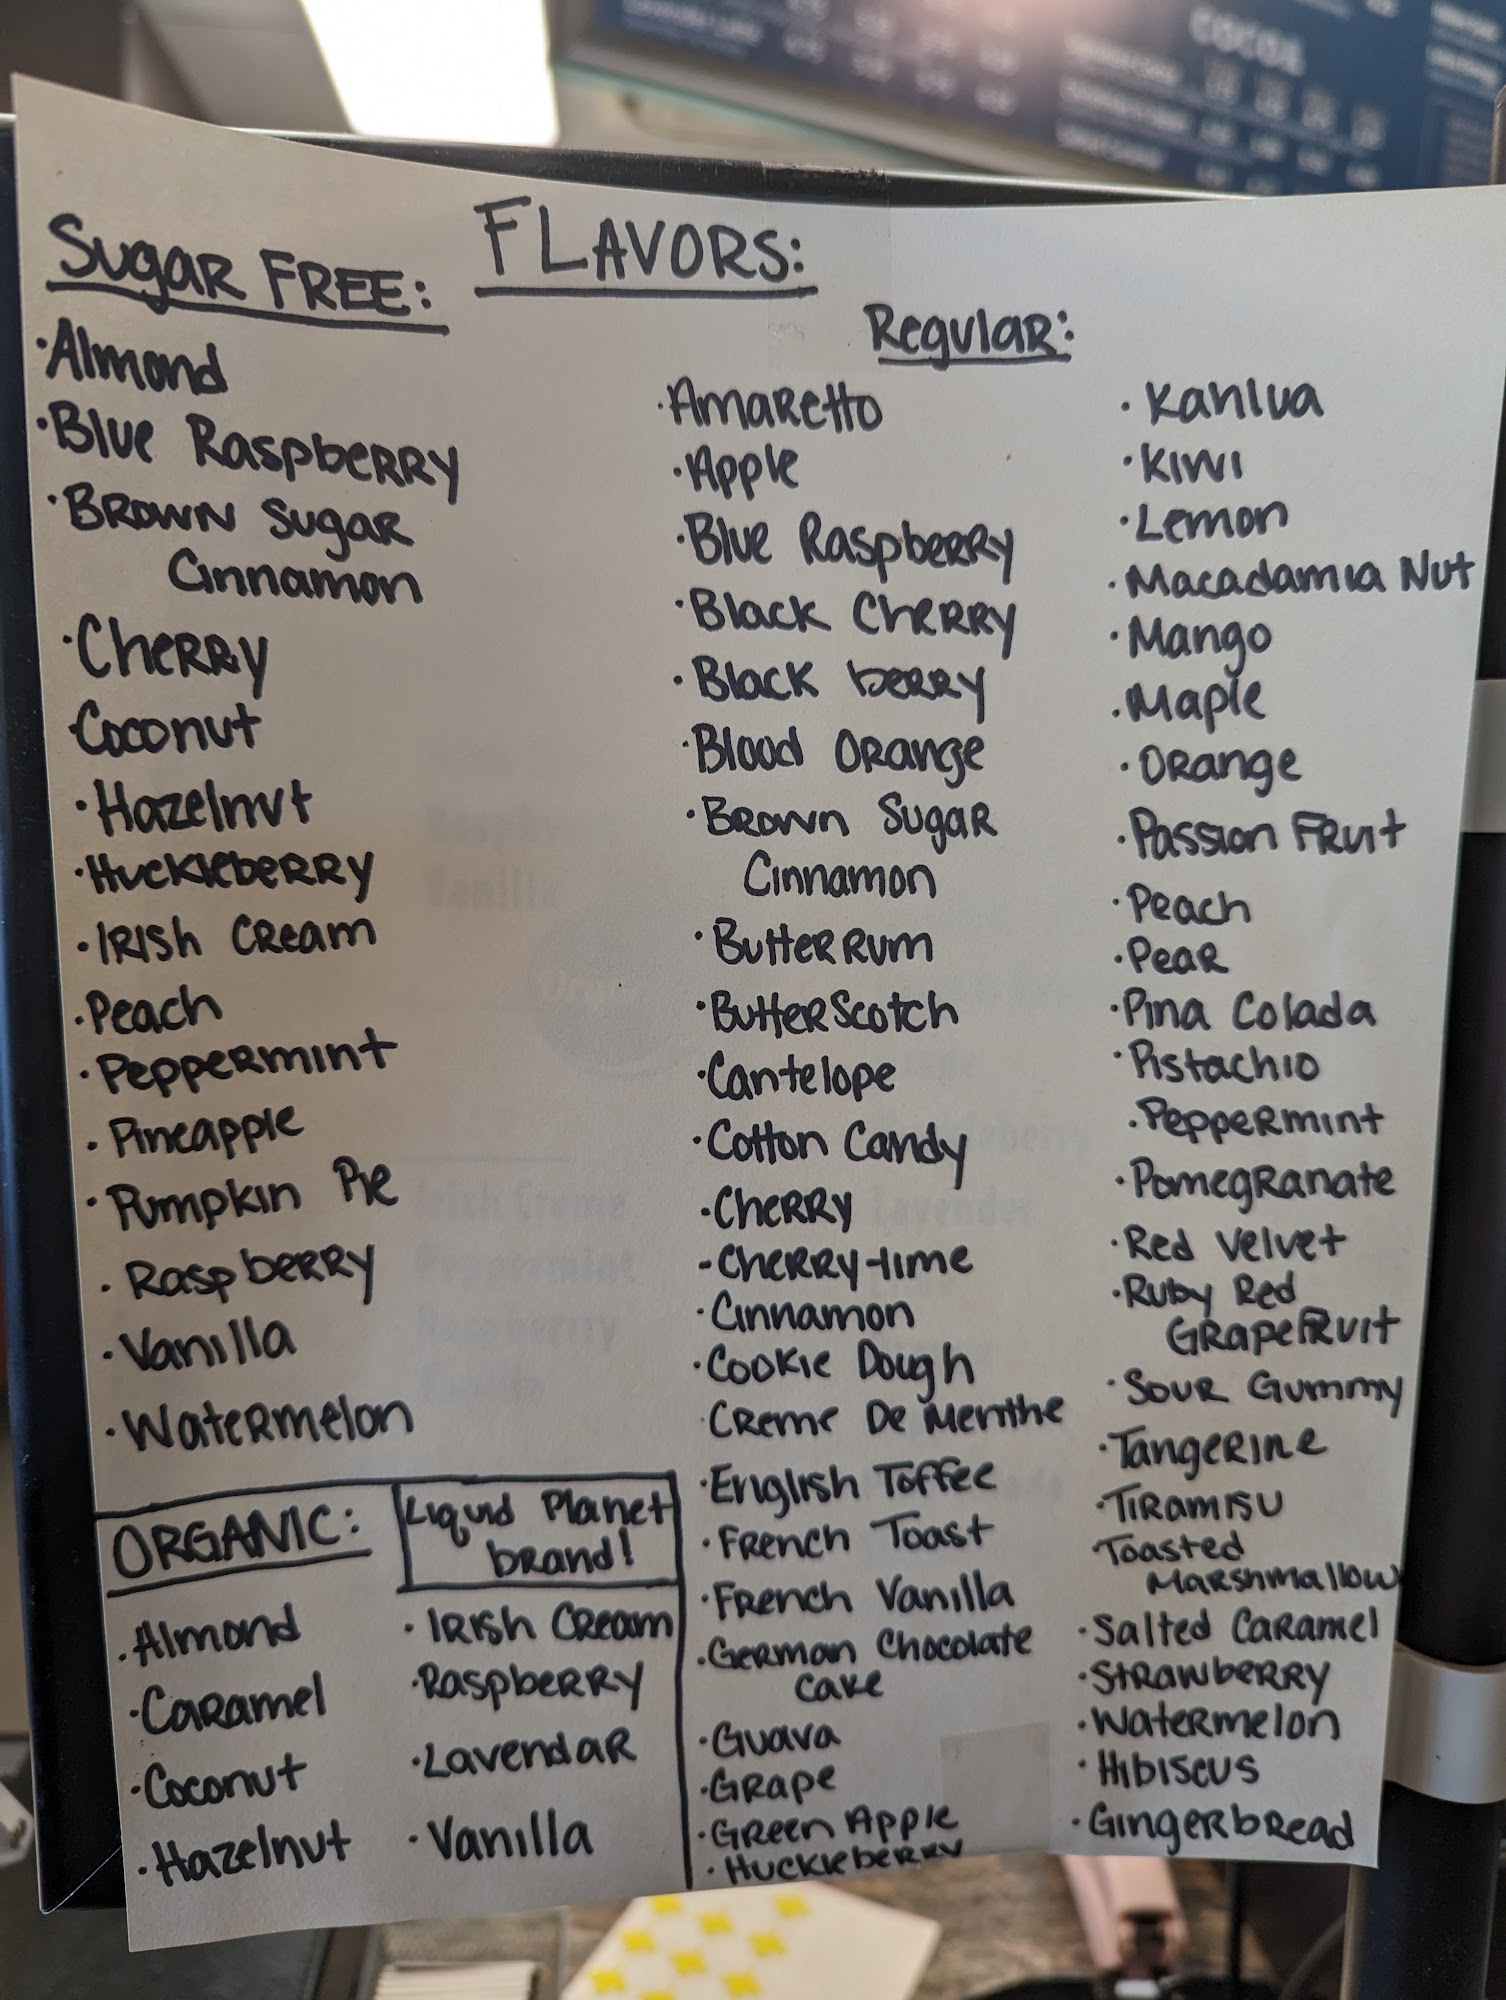 COCOA
FLAVORS:
Sugar FREE:
·Almond
·Blue Raspberry
·Brown Sugar
Cinnamon
·Cherry
·Coconut
·Hazelnut
·Huckleberry
·Irish Cream
·Peach
·Peppermint
·Pineapple
·Pumpkin Pie
·Raspberry
·Vanilla
·Watermelon
ORGANIC:
Liquid Planet
brand!
·Almond
·Caramel
·Coconut
·Hazelnut
·Irish Cream
·Raspberry
·Lavendar
·Vanilla
Regular:
·Amaretto
·Apple
·Blue Raspberry
·Black Cherry
·Black berry
·Blood Orange
·Brown Sugar
Cinnamon
·Butter Rum
·ButterScotch
·Cantelope
·Cotton Candy
·Cherry
-Cherry-lime
·Cinnamon
·Cookie Dough
·Creme De Menthe
·English Toffee
·French Toast
·French Vanilla
·German Chocolate
Cake
·Guava
·Grape
·Green Apple
·Huckleberry
·Kahlua
·Kiwi
·Lemon
·Macadamia Nut
·Mango
·Maple
·Orange
·Passion Fruit
·Peach
·Pear
·Pina Colada
·Pistachio
·Peppermint
·Pomegranate
·Red Velvet
·Ruby Red
Grapefruit
·Sour Gummy
·Tangerine
·Tiramisu
·Toasted
Marshmallow
·Salted Caramel
·Strawberry
·Watermelon
·Hibiscus
·Gingerbread